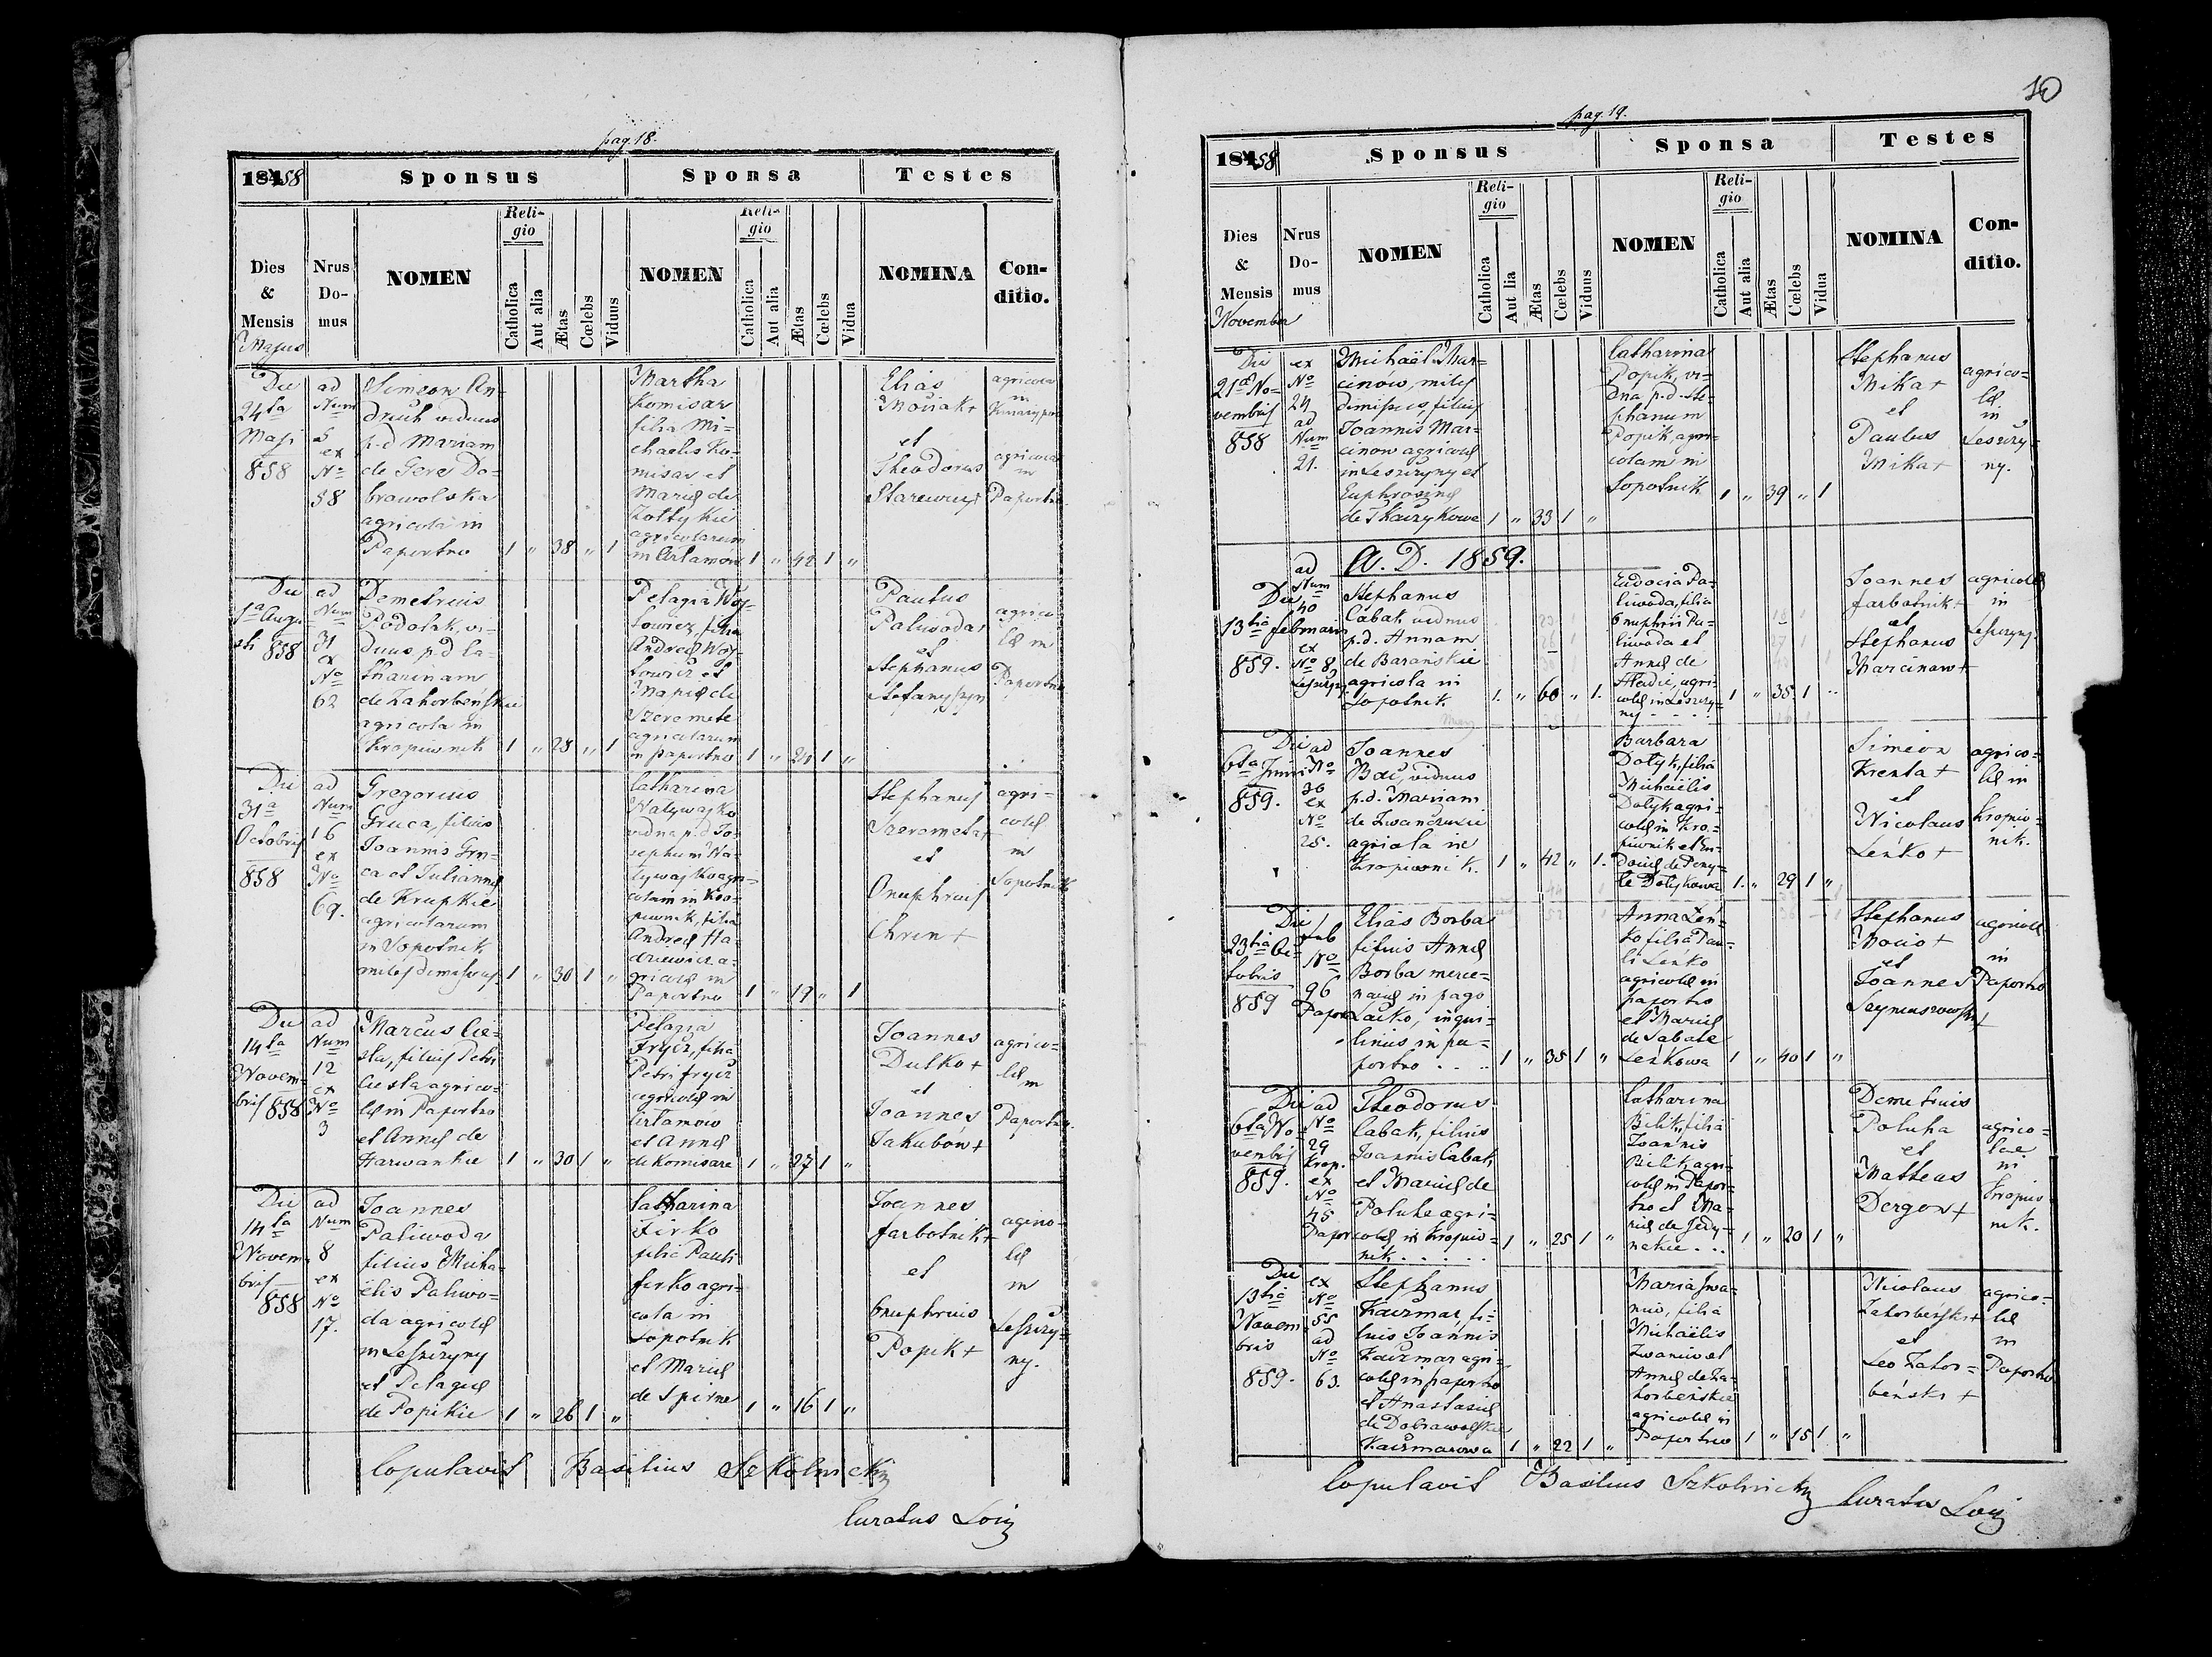 pag. 18.
18458
Sponsus
Sponsa
Testes
Dies
&
Mensis
Majus
Nrus
Do-
mus
NOMEN
Reli-
gio
Catholica
Aut alia
Ætas
Cœlebs
Viduus
NOMEN
Reli-
gio
Catholica
Aut alia
Ætas
Cœlebs
Vidua
NOMINA
Con-
ditio.
Die
24ta
Maji
858
ad
Num
5
ex
No
58
Simeon An-
druch viduus
p.d Mariam
de Gere Do-
browolska
agricola in
Paportno 1 " 38 " 1
Martha
Komisar
filia Mi-
chaelis Ko-
misar et
Mariæ de
Zołtykie
agricolarum
in Artamów 1 " 42 1 "
Elias
Mociak +
et
Theodorus
agricola
in
agricola
in
Paportno
Die
1a Augu-
sti 858
ad
Num
31
ex
No
62
Demetrius
Podolak, vi-
duus p.d Ca-
tharinam
de Zahorbeńskie
agricola in
Kropiwnik 1 " 28 " 1
Pelagia Woj-
towicz, filia
Andreæ Woj-
towicz et
Mariæ de
Szeremete
agricolarum
in paportno 1 " 20 1 "
Paulus
Paliwoda+
et
Stephanus
Stefanyszyn
agrico-
læ in
Paportno
Die
31a
Octobris
858
ad
Num
16
ex
No
69.
Gregorius
Gruca, filius
Joannis Gru-
ca et Juliannæ
de Krupkie
agricolarum
in Sopotnik
miles dimissus 1 " 30 1 "
Catharina
Natywajko
vidua p.d Jo-
sephum Na-
tywajko agri-
colam in Kro-
piwnik, filia
Andreæ Ha-
dziewicz a-
gricolæ in
Paportno 1 " 19 " 1
Stephanus
Szeremeta+
et
Onuphrius
Chren +
agri-
colæ
in
Sopotnik
Die
14ta
Novem-
bris 858
ad
Num
12
ex
No
3
Marcus Cie-
sla, filius Petri
Ciesla agrico-
læ in Paportno
et Annæ de
Harwankie 1 " 30 1 "
Pelagia
Frycz, filia
Petri Frycz
agricolæ in
Artamów
et Annæ
de Komisare 1 " 27 1 "
Joannes
Dutko +
et
Joannes
Jakubów +
agrico-
læ in
Paportno.
Die
14ta
Novem-
bris
858
ad
Num
8
ex
No
17.
Joannes
Paliwoda
filius Micha-
elis Paliwo-
da agricolæ
in Leszczyny
et Pelagiæ
de Popikie 1 " 26 1 "
Catharina
Firko
filia Pauli
Firko agri-
cola in
Sopotnik
et Mariæ
de Spirne 1 " 16 1 "
Joannes
Jarbotnik+
et
Onuphrius
Popik +
agrico-
læ
in
Leszczy-
ny.
Copulavit Basilius Szkolnicki
Curatus Loci
10
pag. 19.
18458
Sponsus
Sponsa
Testes
Dies
&
Mensis
November
Nrus
Do-
mus
NOMEN
Reli-
gio
Catholica
Aut lia
Ætas
Cœlebs
Viduus
NOMEN
Reli-
gio
Catholica
Aut alia
Ætas
Cœlebs
Vidua
NOMINA
Con-
ditio.
Die
21a No-
vembris
858
ex
No
24
ad
Num
21.
Michaël Mar-
cinów, miles
dimissus, filius
Joannis Mar-
cinow agricolæ
in Leszczyny et
Euphrosinæ
de Tkaczykowe 1 " 33 1 "
Catharina
Popik, vi-
dua p.d. Ste-
phanum
Popik, agri-
colam in
Sopotnik 1 " 39 " 1
Stephanus
Mika +
et
Paulus
Mika +
agrico-
læ
in
Leszczy-
ny.
A. D. 1859.
Die
13tia februarii
859.
ad
Num
40
ex
No 8
Stephanus
Cabak viduus
p.d. Annam
de Barańskie
agricola in
Sopotnik 1. " 60 " 1.
Eudocia Pa-
liwoda, filia
Onuphrii Pa-
liwoda et
Annæ de
Hladie, agri-
colæ in Leszczy-
ny 1 " 35 1 "
Joannes
Jarbotnik +
et
Stephanus
Marcinow +
agricolæ
in
Leszczyny
Die
6ta Junii
859.
ad
No
36
ex
No
25.
Joannes
Bać, viduus
p.d. Mariam
de Iwanczukie
agricola in
Kropiwnik. 1 " 42 " 1.
Barbara
Dotyk, filia
Michaëlis
Dotyk agri-
colæ in Kro-
piwnik et Eu-
dociæ de Peny-
le Dotykowa 1. " 29 1 "
Simeon
Krenta +
et
Nicolaus
Leńko +
agrico-
læ in
Kropiw-
nik.
Die
23tia Oc-
tobris
859
sub
No
96
Papor
Elias Borba
filius Annæ
Borba merce-
nariæ in pago
Lacko, inqui-
linus in pa-
portno . . . 1 " 35 1 "
Anna Leń-
ko filia Pau-
li Leńko
agricolæ in
paportno
et Mariæ
de Sabate
Leńkowa 1 " 40 1 "
Stephanus
Mocio +
et
Joannes
agricolæ
in
Paportno
Die
6ta No-
vembris
859.
ad
No
29
Krop.
ex
No
45
Papor
Theodorus
Cabak, filius
Joannis Cabak
et Mariæ de
Poluhe agri-
colæ in Kropiw-
nik . . . . . 1 " 25 1 "
Catharina
Bilik, filia
Joannis
Bilik, agri-
colæ in Papor-
tno et Ma-
riæ de Jedy-
nakie . . . 1 " 20 1 "
Demetrius
Poluha
et
Matteus
Dergon +
agrico-
lae
in
Kropiw-
nik.
Die
13tia
Novem-
bris
859.
ex
No
55
ad
No
63.
Stephanus
Kaczmar, fi-
lius Joannis
Kaczmar agri-
colæ in paportno
et Anastasiæ
de Dobrawolskie
Kaczmarowa 1 " 22 1 "
Maria Iwa-
niw, filia
Michaëlis
Iwaniw et
Annæ de Za-
horbeńskie
agricolæ in
Paportno 1 " 15 1 "
Nicolaus
Zahorbeński+
et
Leo Zahor-
beński +
agrico-
læ
in
Paportno
Copulavit Basilius Szkolnicki Curatus Loci